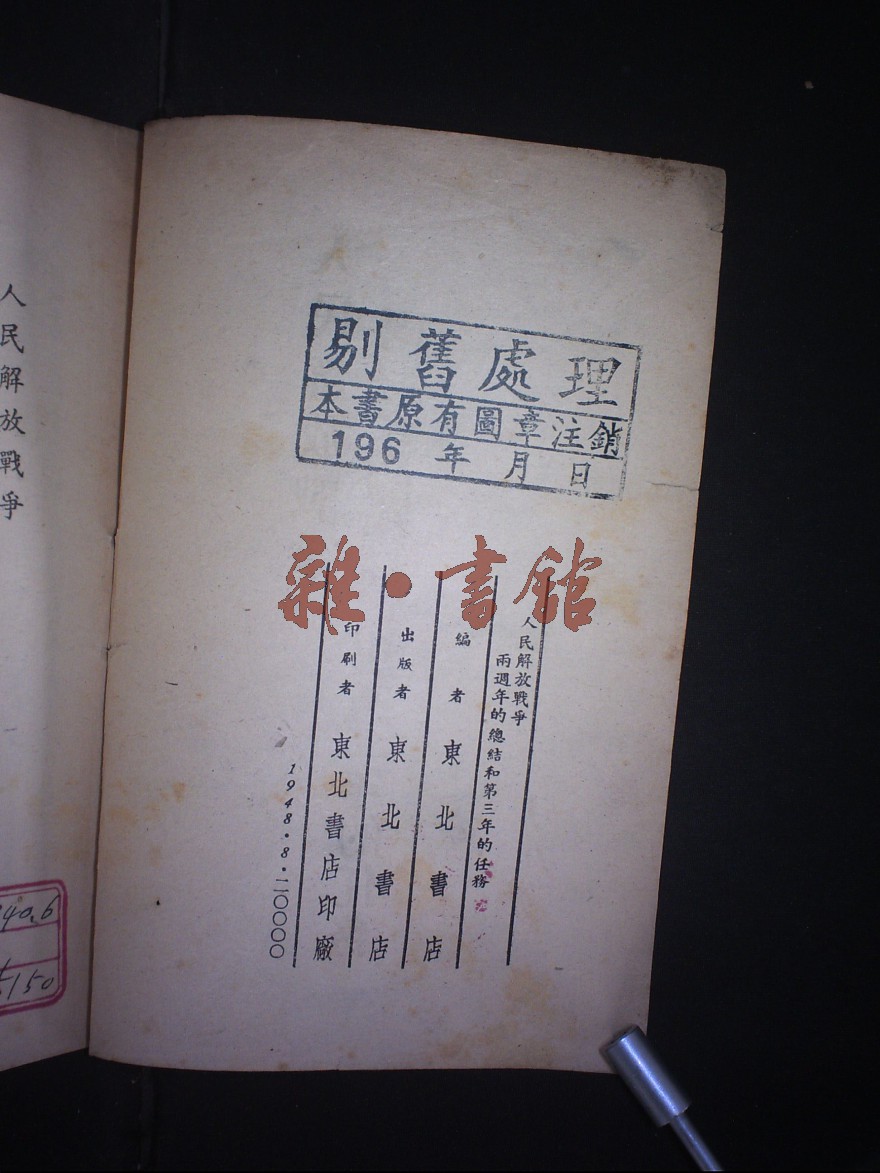 人民解放戰爭
剔舊處理
本書原有圖章注銷
196 年 月 日
雜·書館
人民解放戰爭
兩週年的總結和第三年的任務
編者 東北書店
出版者 東北書店
印刷者 東北書店印廠
1948.8.二〇〇〇〇
40.6
150